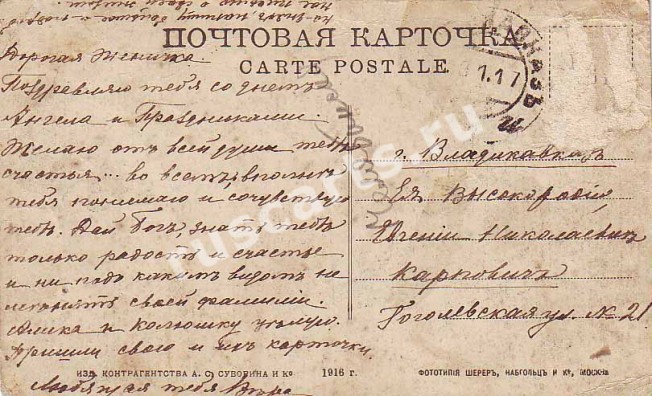 ПОЧТОВАЯ КАРТОЧКА
CARTE POSTALE
КАВКАЗЪ
1.17
Дорогая Женичка
Поздравляю тебя со днемъ
Ангела и Праздниками.
Желаю отъ всей души тебѣ
счастья... во всемъ, вполнѣ
тебя понимаю и сочувствую
тебѣ. Дай Богъ, знать тебѣ
только радость и счастье
и ни подъ какимъ видомъ не
мѣнять своей фамиліи.
Алика и Колюшку цѣлую.
Пришли свою и ихъ карточки.
Любящая тебя Вѣра
г. Владикавказъ
Ея Высокородію
Евгеніи Николаевнѣ
Карповичъ
Гоголевская ул. № 21
ИЗД. КОНТРАГЕНТСТВА А. С. СУВОРИНА И Ко 1916 г.
ФОТОТИПІЯ ШЕРЕРЪ, НАБГОЛЬЦЪ И Ко, МОСКВА
ruscarts.ru